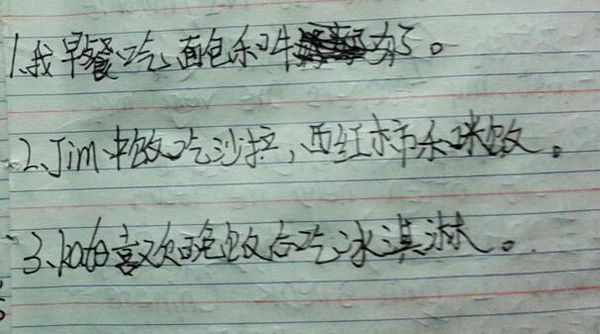 1.我早餐吃面包和牛奶。
2、Jim中饭吃沙拉，西红柿和米饭。
3、kate喜欢晚饭后吃冰淇淋。